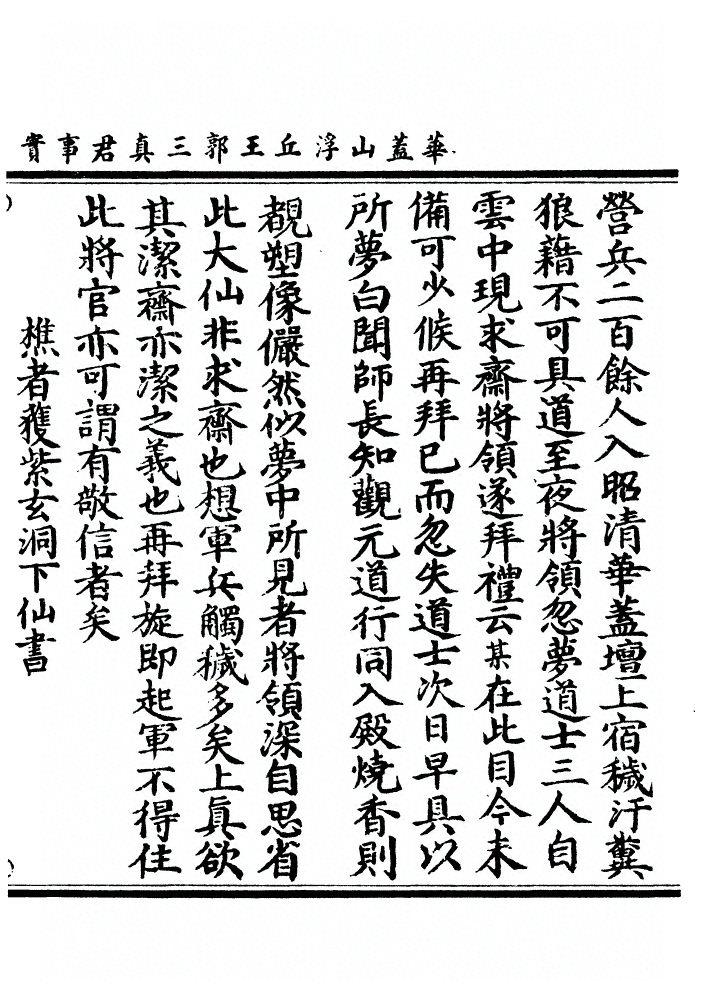 華蓋山浮丘王郭三真君事實
營兵二百餘人入昭清華蓋壇上宿穢汙糞
狼藉不可具道至夜將領忽夢道士三人自
雲中現求齋將領遂拜禮云某在此目今未
備可少候再拜已而忽失道士次日早具以
所夢白聞師長知觀元道行同入殿燒香則
覩塑像儼然似夢中所見者將領深自思省
此大仙非求齋也想軍兵觸穢多矣上真欲
其潔齋亦潔之義也再拜旋即起軍不得住
此將官亦可謂有敬信者矣
樵者獲紫玄洞下仙書